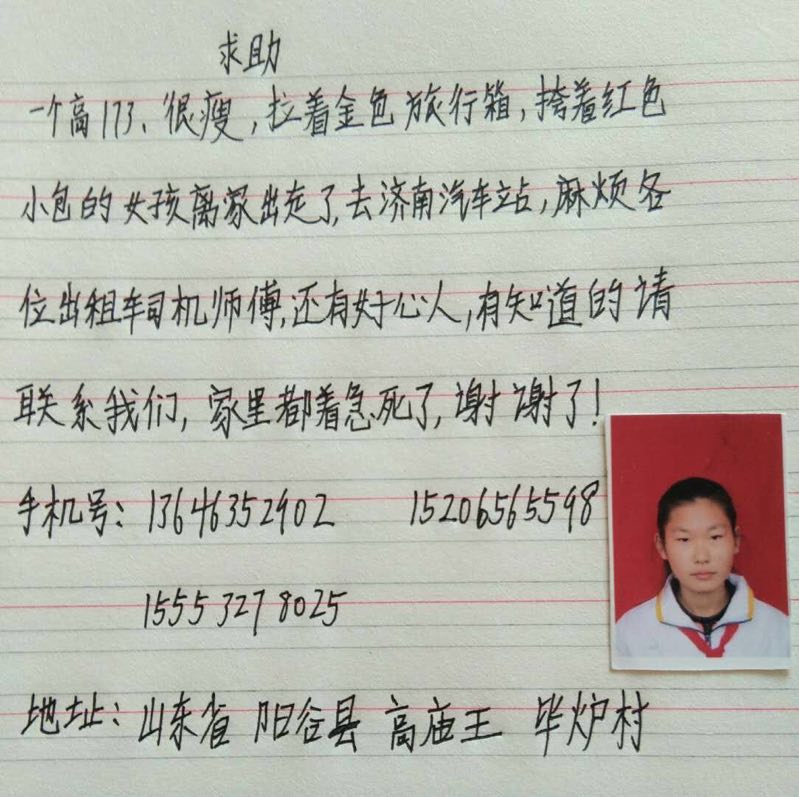 求助
一个高173、很瘦，拉着金色旅行箱，挎着红色
小包的女孩离家出走了，去济南汽车站，麻烦各
位出租车司机师傅，还有好心人，有知道的请
联系我们，家里都着急死了，谢谢了！
手机号：13646352902 15206565598
15553278025
地址：山东省 阳谷县 高庙王 毕炉村